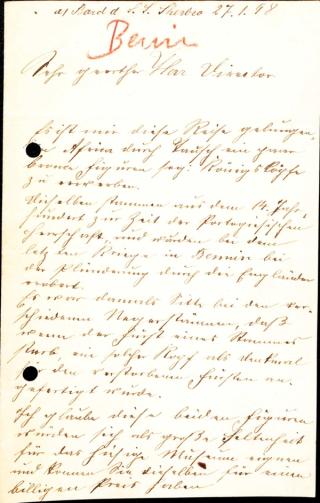 a/ Bord d. S.S. Sherbro 27.1.98
Benin
Sehr geehrter Herr Director
Es ist mir diese Reise gelungen,
in Afrika durch Tausch ein paar
bronce Figuren sog: Königsköpfe
zu erwerben.
Dieselben stammen aus dem 14. Jahr,
hundert zur Zeit der Portogiesischen
Herrschaft, und wurden bei dem
letzten Kriege in Bennin bei
der Plünderung durch die Engländer
erobert.
Es war damals Sitte bei den ver-
schiedenen Negerstämmen, daß
wenn der Fürst eines Stammes
starb, ein solcher Kopf als Denkmal
den verstorbenen Fürsten an,
gefertigt wurde.
Ich glaube diese beiden Figuren
würden sich als große Seltenheit
für das hiesige Museum eignen
und können Sie dieselben für einen
billigen Preis haben